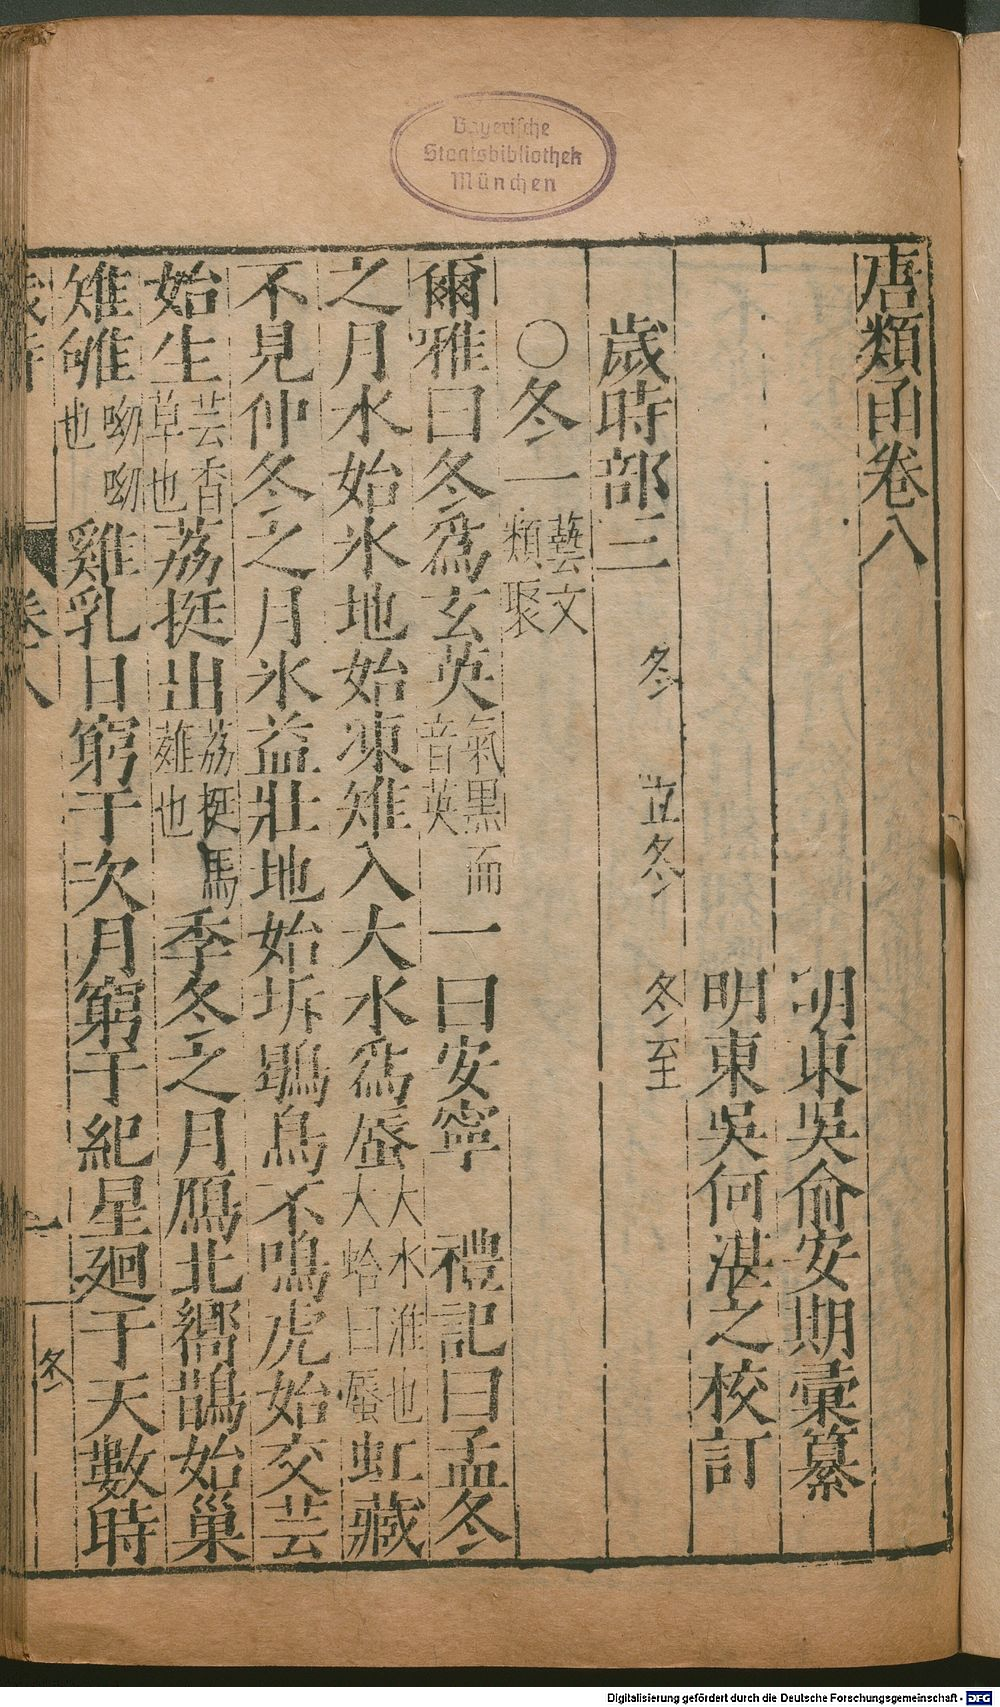 Bayerische
Staatsbibliothek
München
唐類函卷八
明東吳俞安期彙纂
明東吳何湛之校訂
歲時部三 冬 立冬 冬至
○冬一 藝文類聚
爾雅曰冬爲玄英 氣黑而音英 一曰安寧 禮記曰孟冬
之月水始氷地始凍雉入大水爲蜃 大水淮也大蛤曰蜃 虹藏
不見仲冬之月氷益壯地始坼鶡鳥不鳴虎始交芸
始生 芸香草也 荔挺出 荔挺馬薤也 季冬之月鴈北嚮鵲始巢
雉雊 呦呦也 雞乳日窮于次月窮于紀星廻于天數時
卷八
一
冬
Digitalisierung gefördert durch die Deutsche Forschungsgemeinschaft - DFG